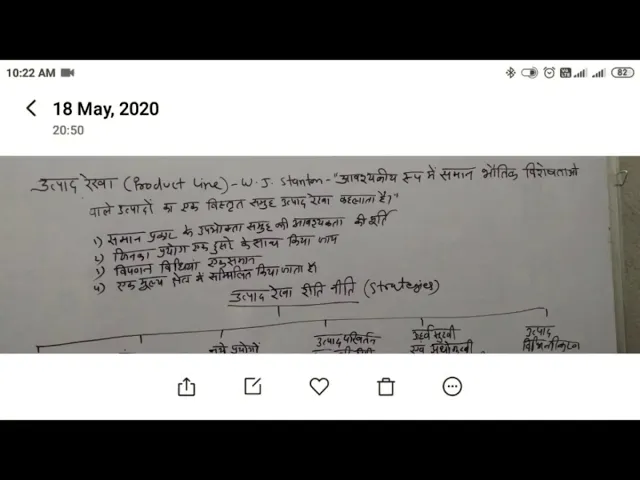 10:22 AM
82
18 May, 2020
20:50
उत्पाद रेखा (Product Line) - W. J. Stanton - "आवश्यकीय रूप में समान भौतिक विशेषताओ
वाले उत्पादों का एक विस्तृत समुह उत्पाद रेखा कहलाता है।"
1) समान प्रकार के उपभोक्ता समुह की आवश्यकता की पूर्ति
2) जिनका प्रयोग एक दुसरे के साथ किया जाय
3) विपणन विधियां एक समान
4) एक मूल्य क्षेत्र में सम्मिलित किया जाता है।
उत्पाद रेखा रीति नीति (Strategies)
नये प्रयोगो
उत्पाद परिवर्तन
उर्ध्वमुखी
एवं अधोमुखी
उत्पाद
विभिन्नीकरण